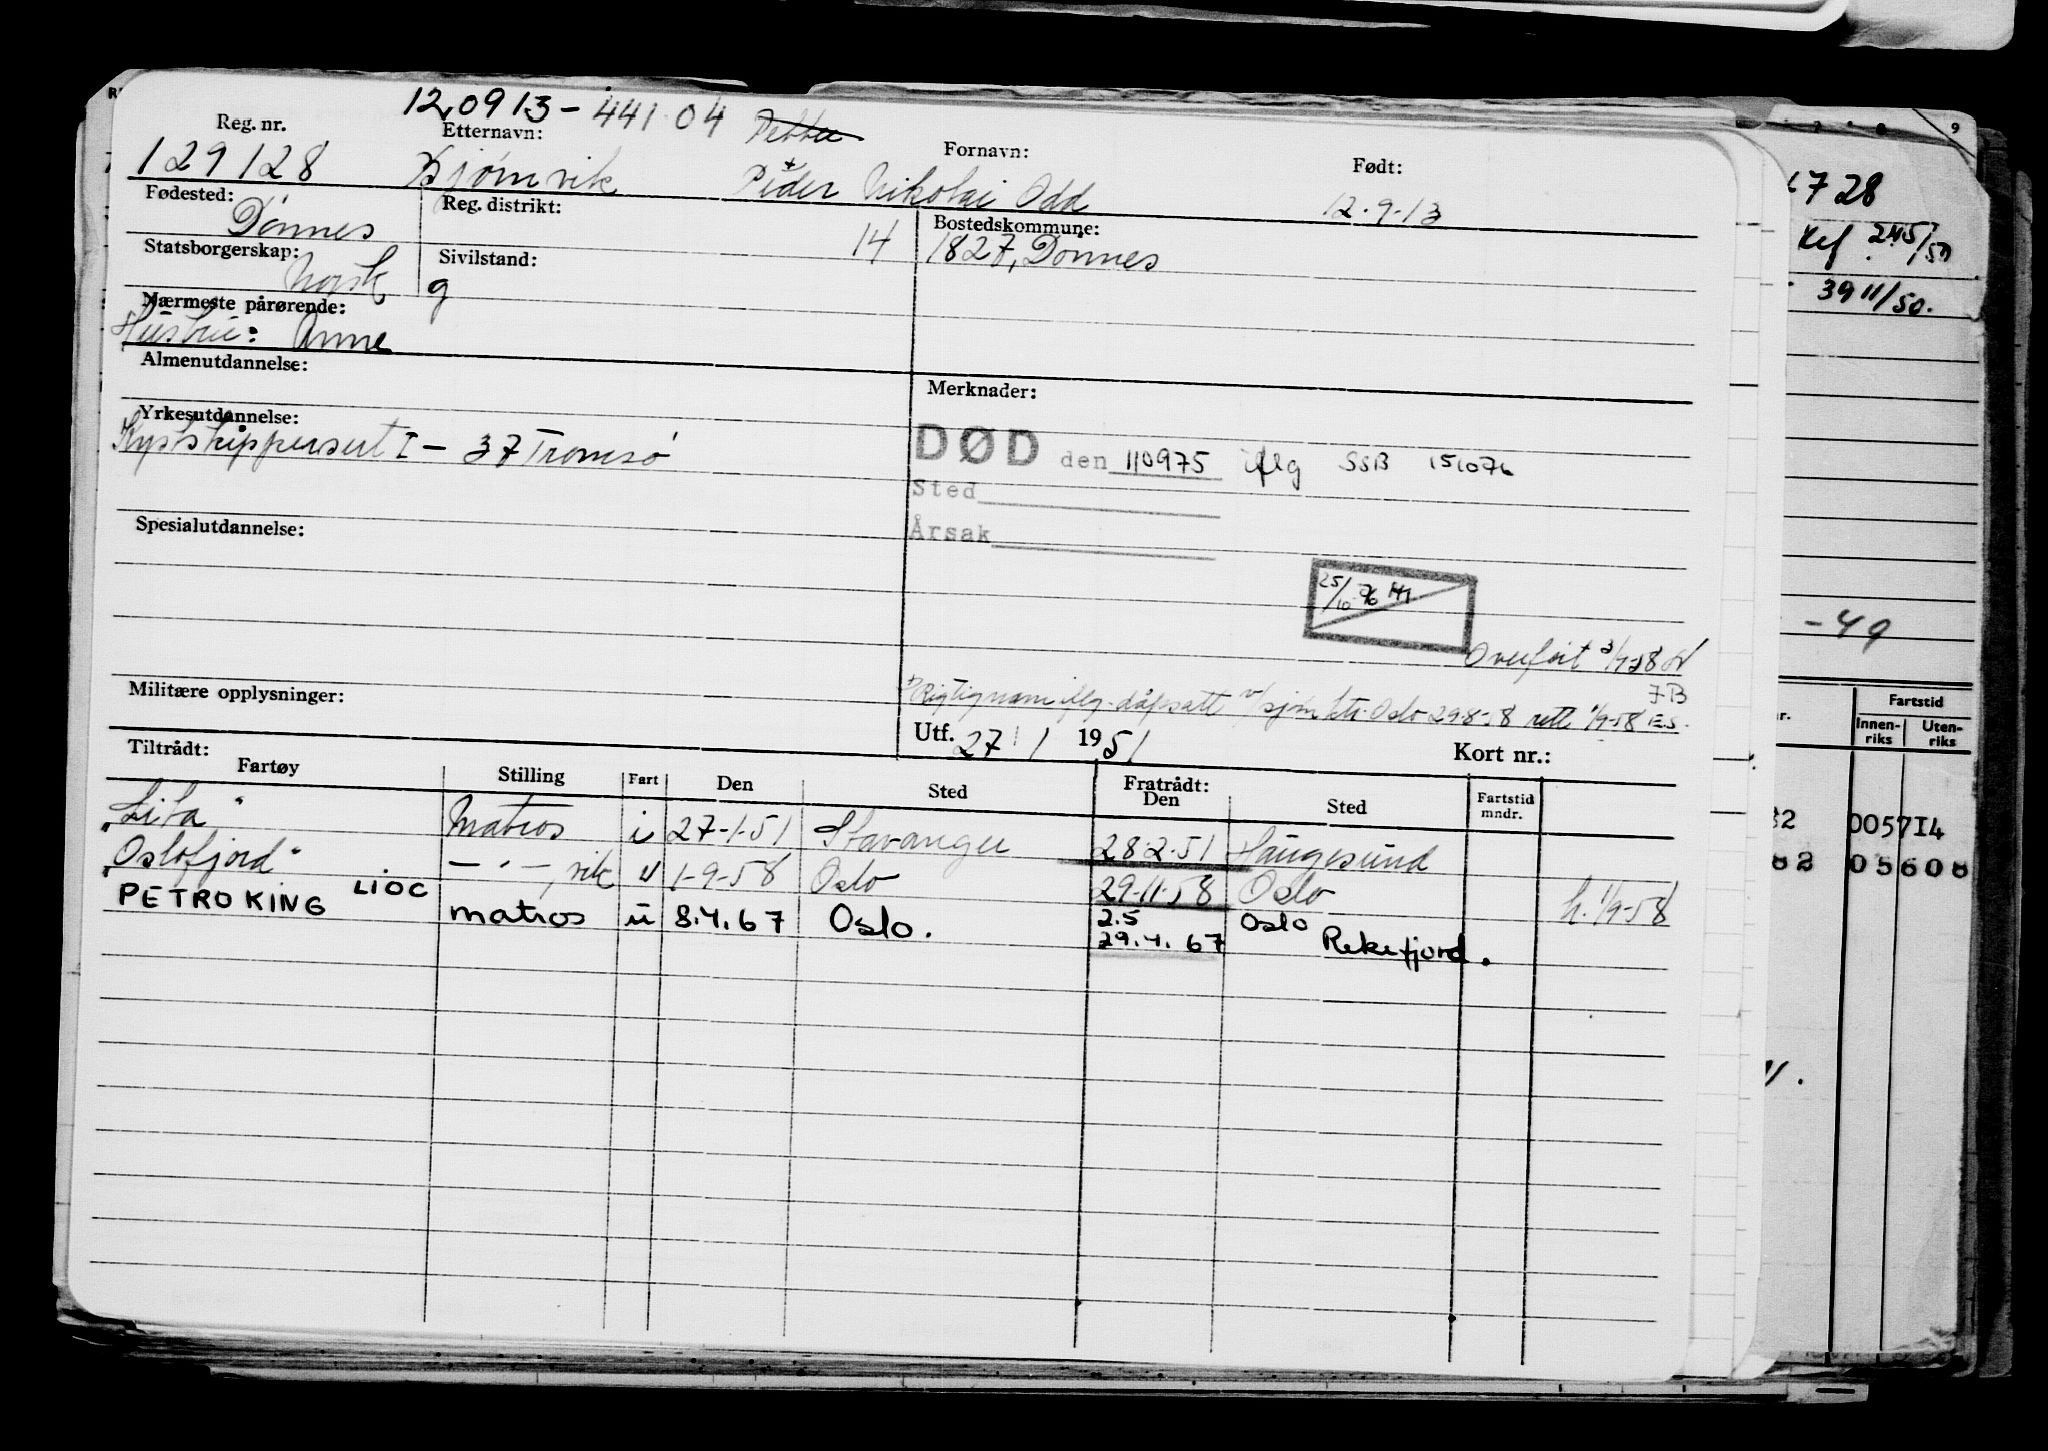 120913-441 04 Petter
Reg. nr. Etternavn: Fornavn: Født:
129128 Bjørnvik Peder Nikolai Odd 12.9.13
Fødested: Reg. distrikt: Bostedskommune:
Dønnes 14 1827, Dønnes
Statsborgerskap: Sivilstand:
Norsk g
Nærmeste pårørende:
Hustru: Anne
Almenutdannelse: Merknader:
Yrkesutdannelse:
Kystskippersert I - 37 Tromsø
DØD den 110975 iflg SSB 151076
Sted
Årsak
Spesialutdannelse:
25/10-76
Overført
Militære opplysninger:
Rigtig navn iflg. dåpsatt v/sjøm ktr. Oslo 29-8-58 rett 1/9-58 E.S.
Utf. 27/1 1951 Kort nr.:
Tiltrådt: Fratrådt:
Fartøy Stilling Fart Den Sted Den Sted Fartstid mndr.
Matros i 27-1-51 Stavanger 28.2.51 Haugesund
"Oslofjord" — " — u 1-9-58 Oslo 29-11-58 Oslo h. 1/9-58
PETRO KING LIOC matros u 8.4.67 Oslo. 2.5 Oslo
29.4.67 Rekefjord.
6728
245/50
3911/50.
-49
Fartstid
Innenriks Utenriks
32 005714
82 05608